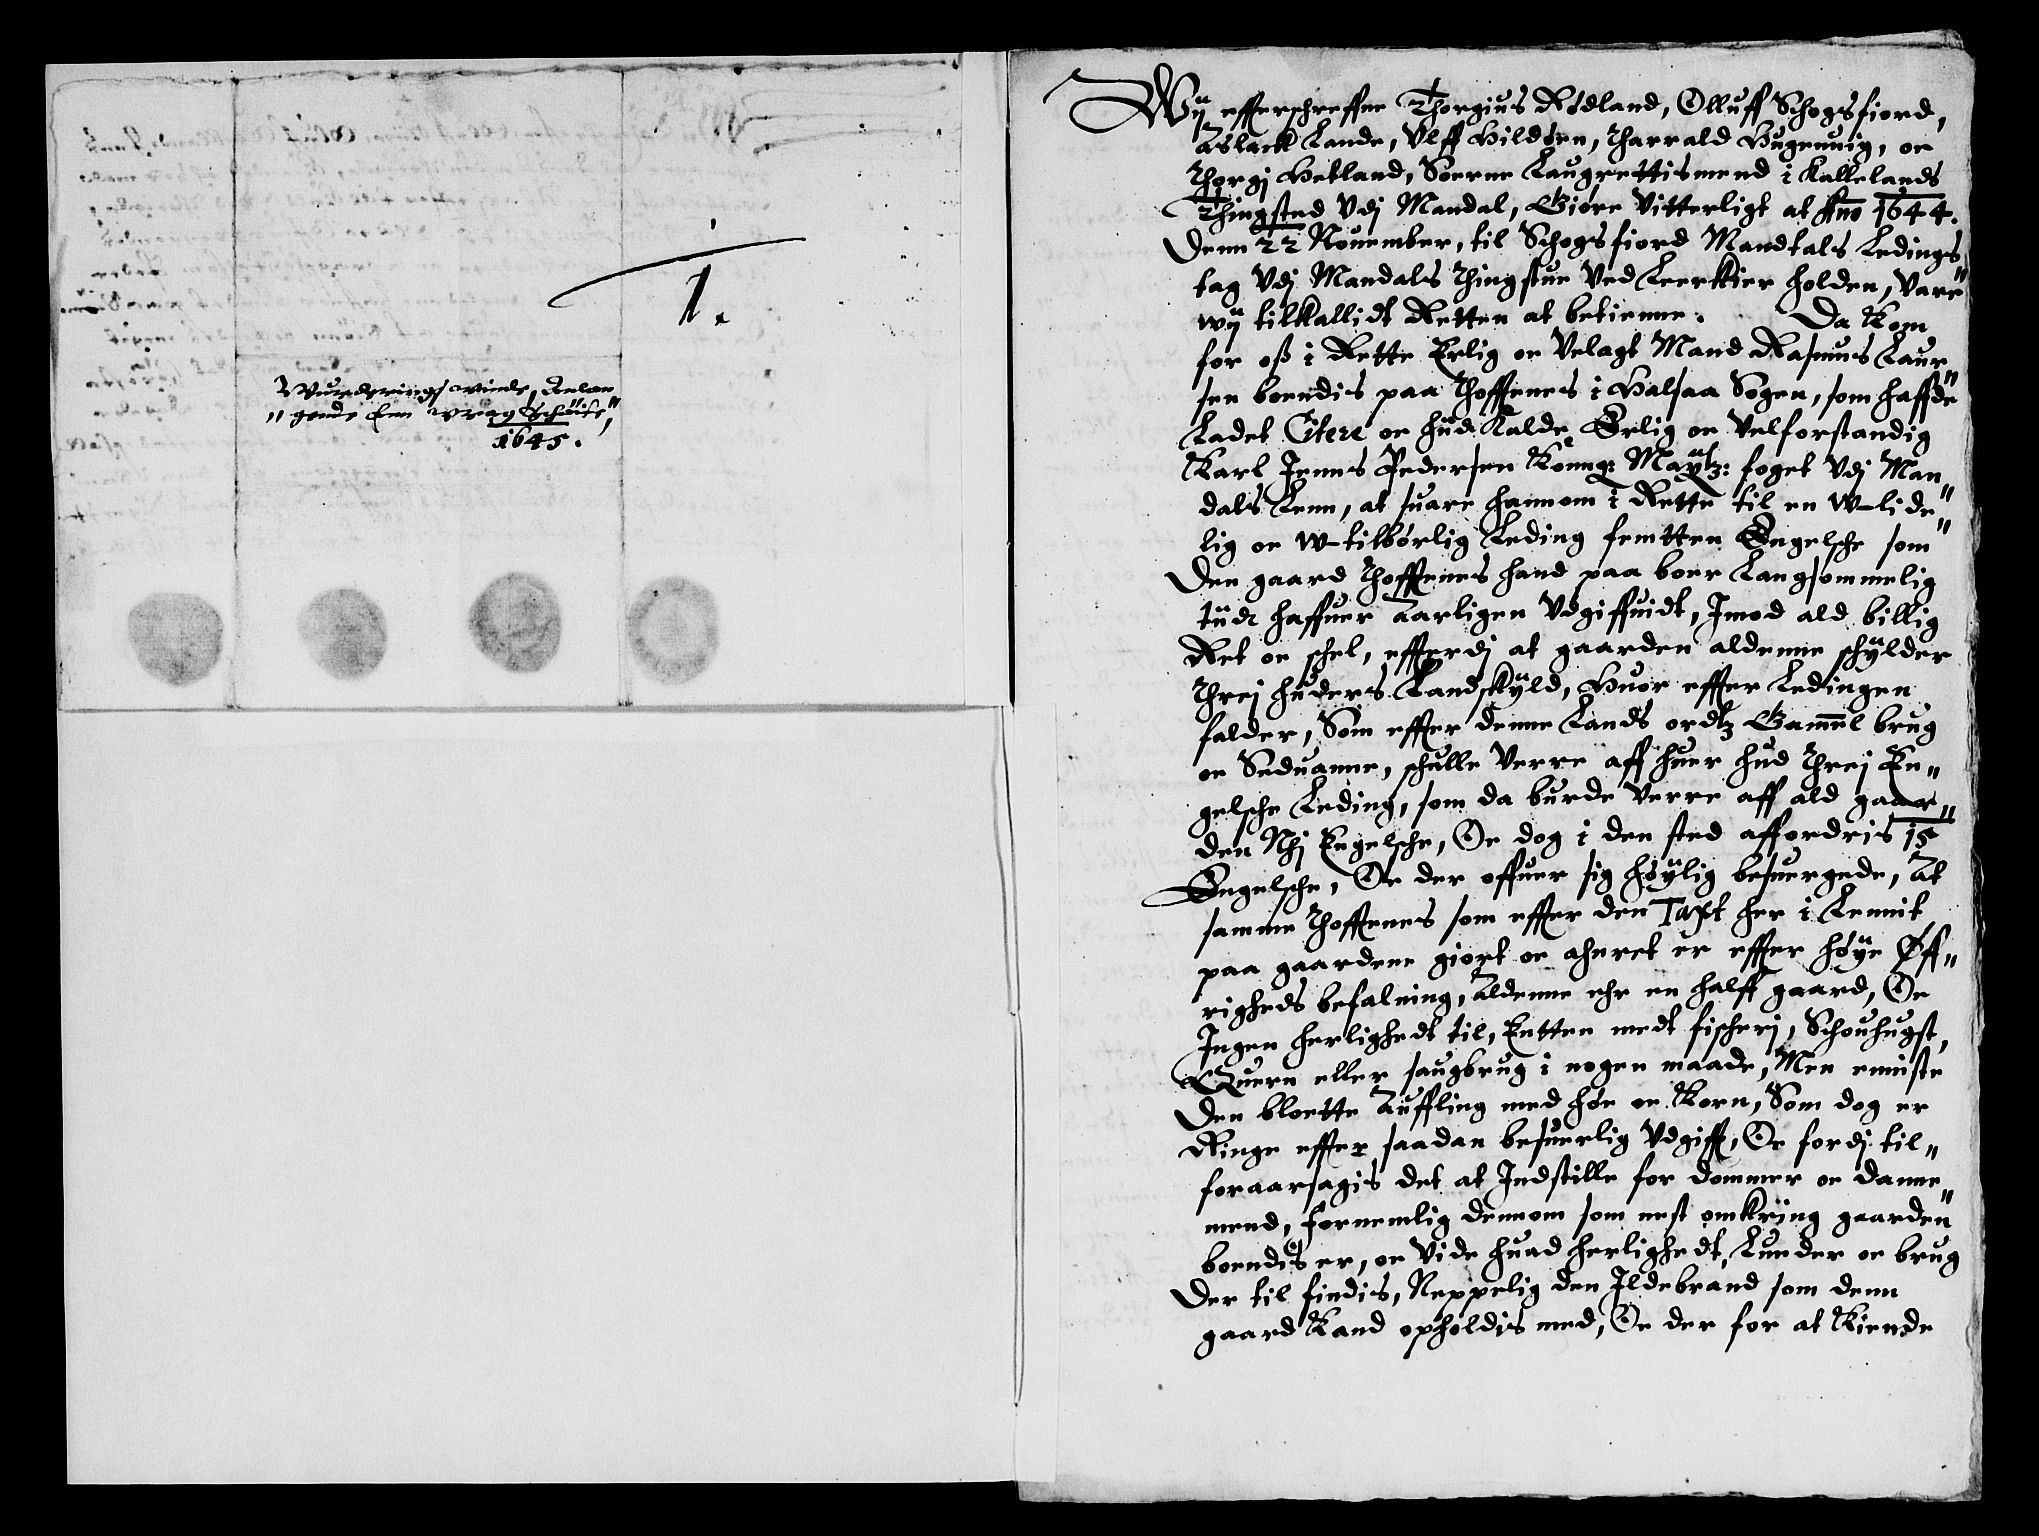 1.
Wurderings winde, Anlan
"gende Een wrag Schude,"
1645.
Wÿ efferschreffne Thorgius Rødland, Olluff Schogsfiord,
Aslack Lande, Vlff Hildøen, Tharrald Hugenuig, oc
Thorgj Hetland, Sorne Laugrettismend i Kallelands
Thingsted Vdj Mandal, Giøre Vitterligt at Ano 1644.
Denn 22 Nouember, til Schogsfiord Mandtals Ledings
tag Vdj Mandals Thingstue Ved Leerkier holden, Vare"
wÿ tilkallidt Retten at betienne. Da Kom
for oß i Rette Erlig oc Velagt Mand Rasmus Laur
sen boendis paa Thoffenes i Halsaa Sogen, som haffde"
Ladet Citere oc hid Kalde, Erlig oc Velforstandig
Karl Jenns Pedersen Konng: Maÿtz: foget Vdj Man
dals Lenn, at suare hannom i Rette til en W-lide"
lig oc W-tilbørlig Leding femtten Engelsche som"
Den gaard Thoffenes hand paa boer Langsommelig
tiidt haffuer Aarligen Vdgiffuidt, Imod ald billig
Ret oc schel, efferdj at gaarden aldenne schÿlder
Threj huders Landskÿld, Huor effter Ledingen
falder, Som effter denne Lands ordtz Gammel brug
oc Seduanne, schulle Verre aff huer hud Threj En"
gelsche Leding, som da burde Verre aff ald gaar"
den Nhj Engelsche, Oc dog i den sted affordris 15
Engelsche, Oc der offuer sig høÿlig besuergede, At
samme Thoffenes som effter den Taxt her i Lennit
paa gaardene giort oc ahnret er effter høÿe Øff"
righeds befalning, Aldenne ehr en halff gaard, Oc
Ingen herlighedt til, Entten medt fischerj, Schouhugst,
Quern eller saugbrug i nogen maade, Men eniiste
Den blotte Auffling med høe oc Korn, Som dog er
Ringe effter saadan besuerlig Vdgifft, Oc fordj til"
foraarsagis det at Indstille for dommer oc danne"
mend, fornemlig dennom som nest omkring gaarden
boendis er, oc Vide huad herlighedt, Lunder oc brug
Der til findis, Neppelig den Ildebrand som denn
gaard Kand opholdis med, Oc der for at Kiende